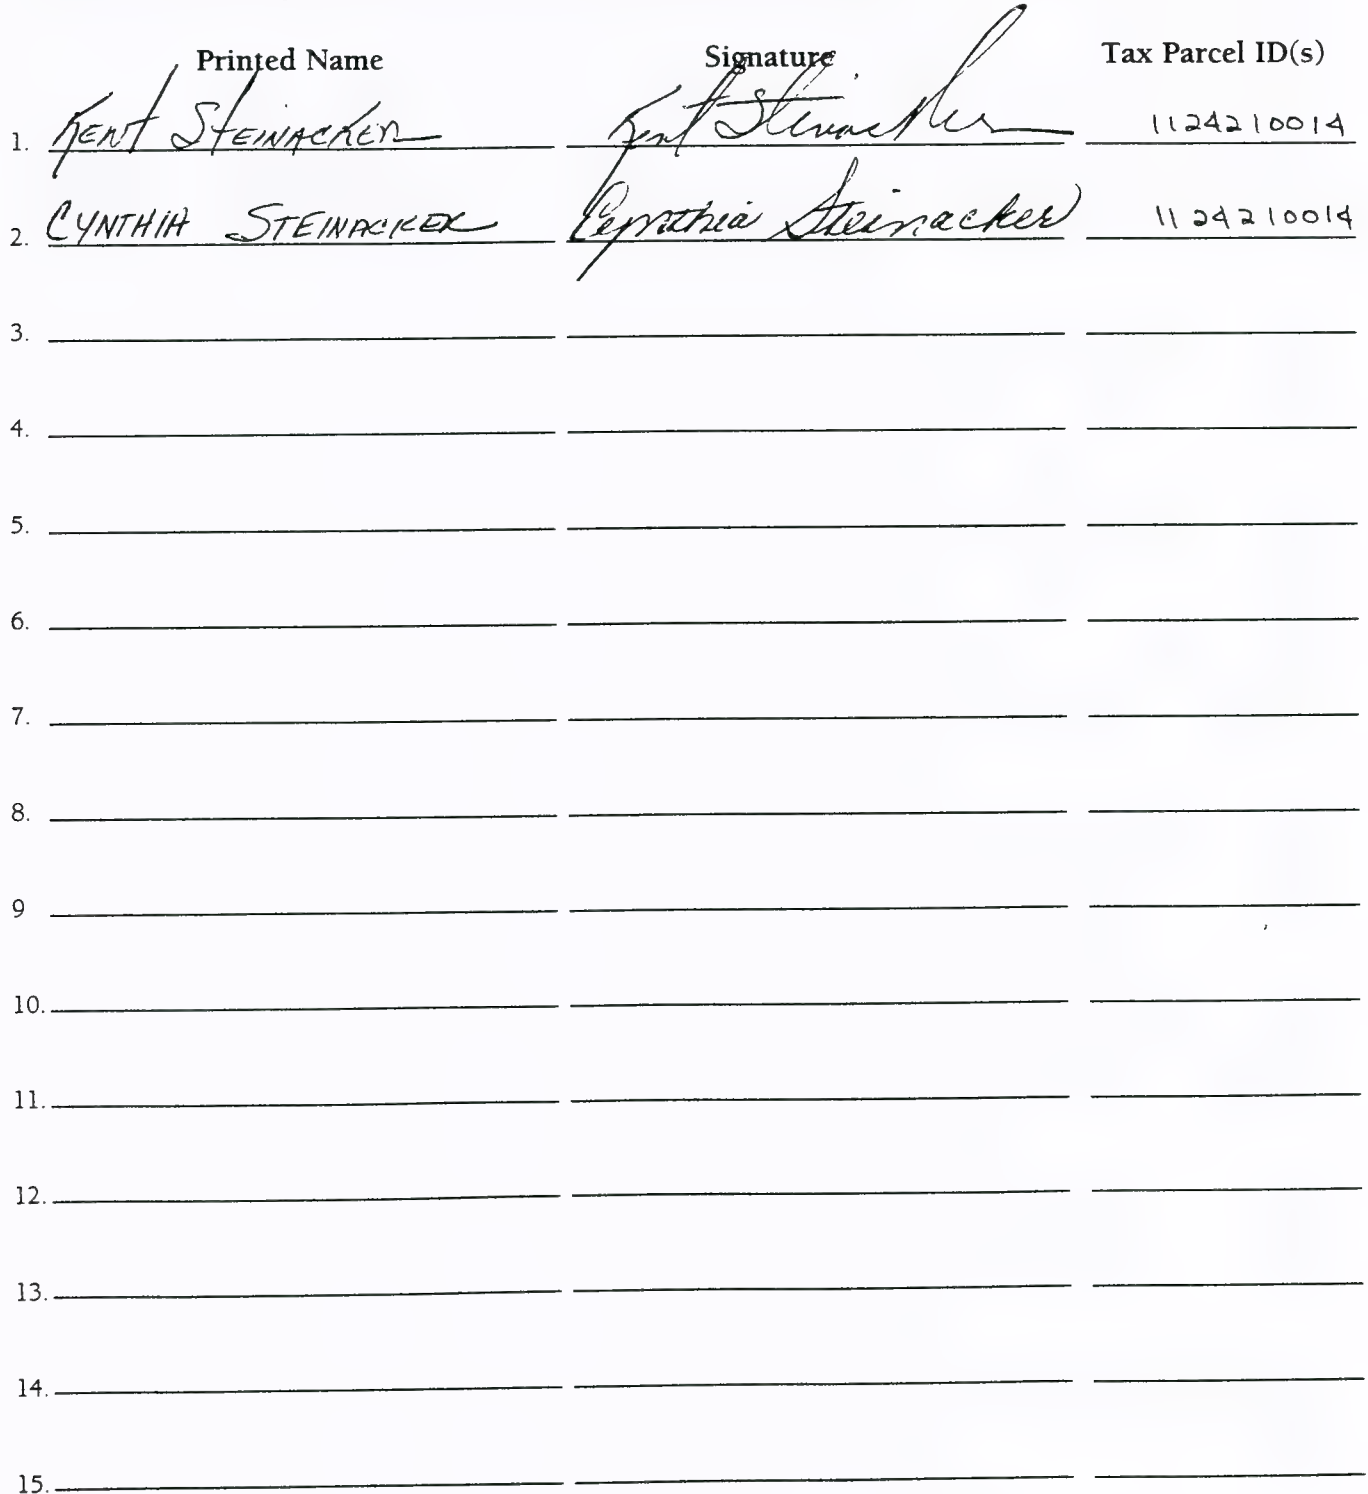 Printed Name Signature Tax Parcel ID(s)
1. KENT STEINACKER Kent Steinacker 1124210014
2. CYNTHIA STEINACKER Cynthia Steinacker 1124210014
3.
4.
5.
6.
7.
8.
9
10.
11.
12.
13.
14.
15.